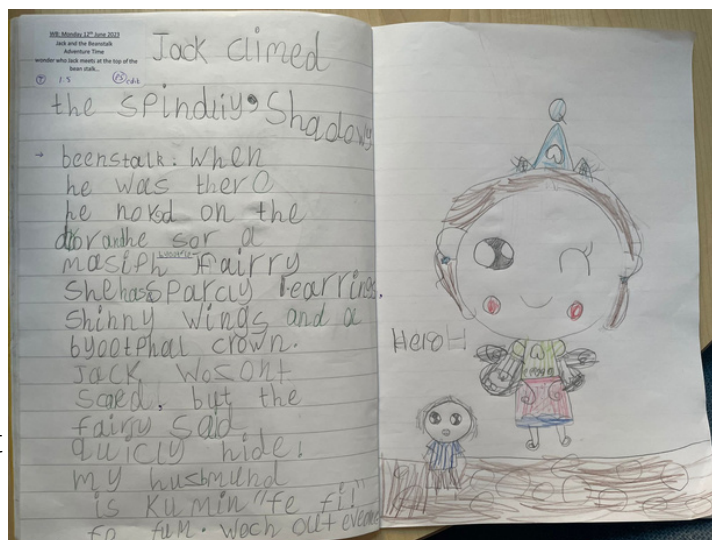 WB: Monday 12th June 2023
Jack and the Beanstalk
Adventure Time
wonder who Jack meets at the top of the
bean stalk...
Jack climed
the spindliy, Shadowy
beenstalk. When
he was there
he noked on the
dor andhe sor a
masiph fairry
She has sparcly earrings,
Shinny wings and a
byootphal crown.
Jack wosont
scared, but the
fairy said
quicly hide!
my husbmund
is kumin "fe fi!"
fo fum. Woch out
Hero H